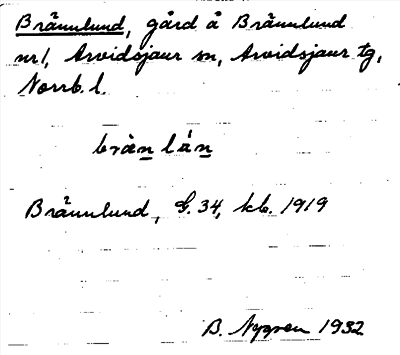 Brännlund, gård å Brännlund
nr 1, Arvidsjaur sn, Arvidsjaur tg,
Norrb. l.
bràn lán
Brännlund, G. 34, kb. 1919
B. Nygren 1932